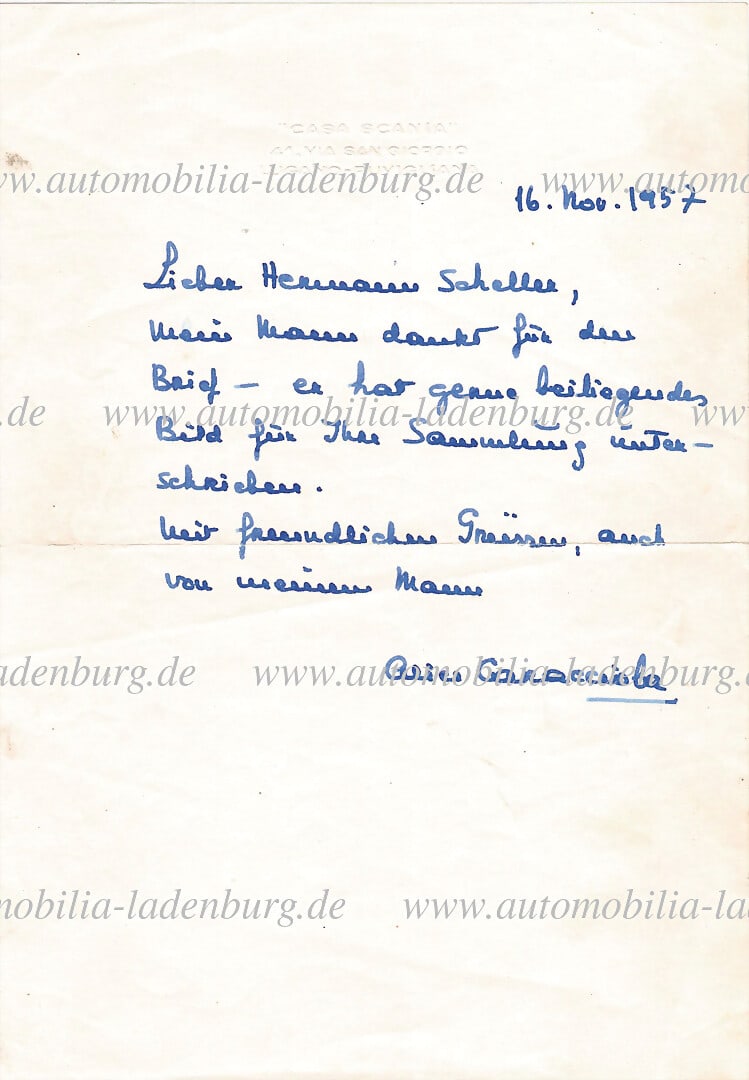 "CASA SCANIA"
41, VIA SAN GIORGIO
www.automobilia-ladenburg.de www.automo
16. Nov. 1957
Lieber Hermann Scheller,
mein Mann dankt für den
Brief – er hat gerne beiliegendes
.de www.automobilia-ladenburg.de ww
Bild für Ihre Sammlung unter-
schrieben.
Mit freundlichen Grüssen, auch
von meinem Mann
ladenburg.de www.automobilia-ladenburg.
Alice Caracciola
mobilia-ladenburg.de www.automobilia-la